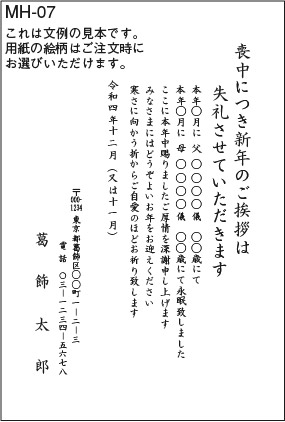 MH-07
これは文例の見本です。
用紙の絵柄はご注文時に
お選びいただけます。
喪中につき新年のご挨拶は
失礼させていただきます
本年〇月に 父 〇〇〇〇儀 〇〇歳にて
本年〇月に 母 〇〇〇〇儀 〇〇歳にて永眠致しました
ここに本年中賜りましたご厚情を深謝申し上げます
みなさまにはどうぞよいお年をお迎えください
寒さに向かう折からご自愛のほどお祈り致します
令和四年十二月（又は十一月）
〒000-1234 東京都葛飾区〇〇町一ー二ー三
電話 〇三ー一二三四ー五六七八
葛飾 太郎